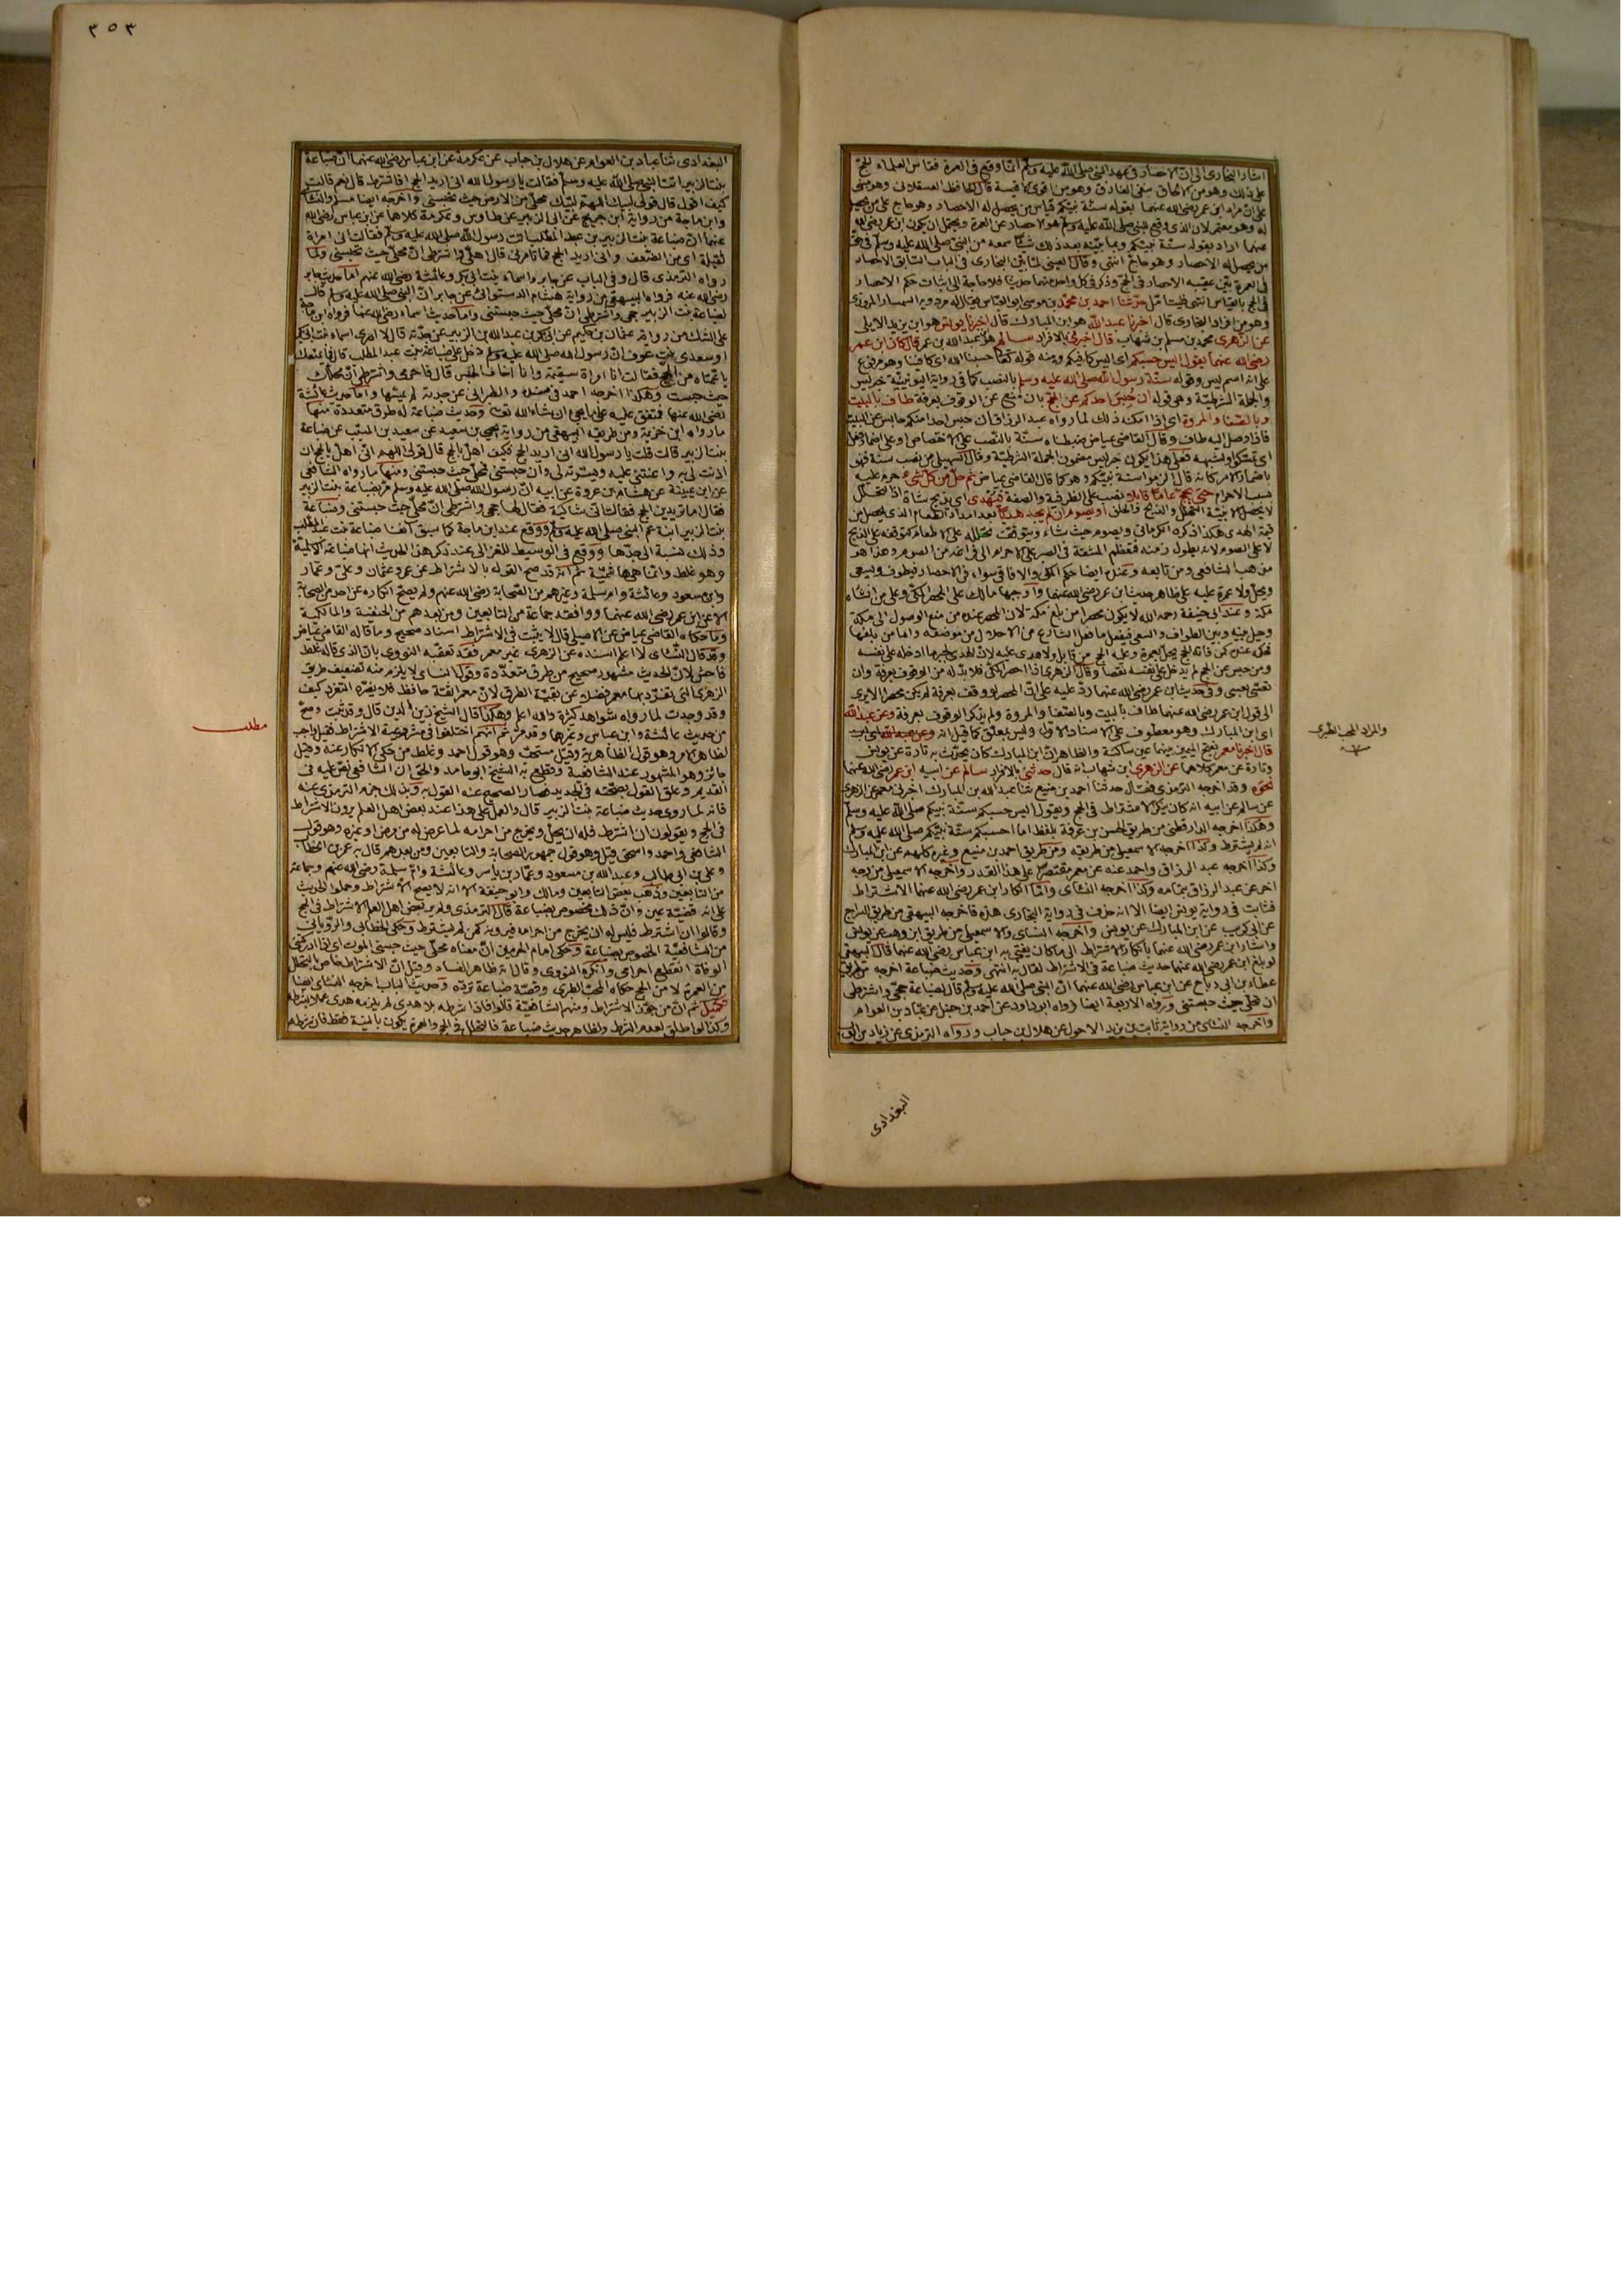 ٣٥٣
اشار البخارى الى ان الاحصار فى عهد النبى صلى الله عليه وسلم انما وقع فى العمرة فقاس العلماء الحج
على ذلك وهو من الالحاق بنفى الفارق وهو من اقوى الاقيسة قال الحافظ العسقلانى وهو مبنى
على ان مراد ابن عمر رضى الله عنهما بقوله سنة نبيكم قياس من يحصل له الاحصار وهو حاج على من يحصل
له وهو معتمر لان الذى وقع للنبى صلى الله عليه وسلم هو الاحصار عن العمرة ويحتمل ان يكون ابن عمر رضى الله
عنهما اراد بقوله سنة نبيكم وبما بينه بعد ذلك شيئا سمعه من النبى صلى الله عليه وسلم فى حق
من يحصل له الاحصار وهو حاج انتهى وقال العينى لما بين البخارى فى الباب السابق الاحصار
فى العمرة بين عقيبه الاحصار فى الحج وذكر فى كل واحد منهما حديثا فلا حاجة الى اثبات حكم الاحصار
فى الحج بالقياس انتهى فليتأمل حدثنا احمد بن محمد بن موسى ابو العباس يقال له مردويه السمسار المروزى
وهو من افراد البخارى قال اخبرنا عبد الله هو ابن المبارك قال اخبرنا يونس هو ابن يزيد الايلى
عن الزهرى محمد بن مسلم بن شهاب قال اخبرنى بالافراد سالم هو ابن عبد الله بن عمر قال كان ابن عمر
رضى الله عنهما يقول اليس حسبكم اى اليس كافيكم ومنه قوله تعالى حسبنا الله اى كافينا وهو مرفوع
على انه اسم ليس وقوله سنة رسول الله صلى الله عليه وسلم بالنصب كما فى رواية اليونينية خبر ليس
والجملة الشرطية وهى قوله ان حبس احدكم عن الحج بان منع عن الوقوف بعرفة طاف بالبيت
وبالصفا والمروة اى اذا امكنه ذلك لما رواه عبد الرزاق ان حبس احدا منكم حابس عن البيت
فاذا وصل اليه طاف وقال القاضى عياض ضبطناه سنة بالنصب على الاختصاص او على اضمار فعل
اى تمسكوا وشبهه فعلى هذا يكون خبر ليس مضمون الجملة الشرطية وقال السهيلى من نصب سنة فهو
باضمار الامر كانه قال الزموا سنة نبيكم وهو كما قال القاضى عياض ثم حل من كل شىء حرم عليه
بسبب الاحرام حتى يحج عاما قابلا نصب على الظرفية والصفة فيهدى اى يذبح شاة اذا التحلل
لا يحصل الا بنية التحلل والذبح والحلق او يصوم ان لم يجد هديا بعد امداد الطعام الذى يحصل من
قيمة الهدى هكذا ذكره الكرمانى ويصوم حيث شاء ويتوقف تحلله على الاطعام كتوقفه على الذبح
لا على الصوم لانه يطول زمنه فتعظم المشقة فى الصبر على الاحرام الى فراغه من الصوم وهذا هو
مذهب الشافعى ومن تابعه وعنده ايضا حكم المكى والافاقى سواء فى الاحصار فيطوف ويسعى
ويحل ولا عمرة عليه على ظاهر حديث ابن عمر رضى الله عنهما واوجبها مالك على المحصر المكى وعلى من انشأه
مكة وعند ابى حنيفة رحمه الله لا يكون محصرا من بلغ مكة لان المحصر عنده من منع الوصول الى مكة
وحيل بينه وبين الطواف والسعى فيفعل ما فعل الشارع من الاحلال من موضعه واما من بلغها
فحكمه عنده كمن فاته الحج يحل بعمرة وعليه الحج من قابل ولا هدى عليه لان الهدى لجبر ما ادخله على نفسه
ومن حبس عن الحج لم يدخل على نفسه نقصا وقال الزهرى اذا احصر المكى فلا بد له من الوقوف بعرفة وان
نعش نعشا وفى حديث ابن عمر رضى الله عنهما رد عليه على ان المحصر لو وقف بعرفة لم يكن محصرا الا يرى
الى قول ابن عمر رضى الله عنهما طاف بالبيت وبالصفا والمروة ولم يذكر الوقوف بعرفة وعن عبد الله
اى ابن المبارك وهو معطوف على الاسناد الاول وليس بمعلق كما قيل انه
قال اخبرنا معمر بفتح الميمين بينهما عين ساكنة والظاهر ان ابن المبارك كان يحدث به تارة عن يونس
وتارة عن معمر كلاهما عن الزهرى ابن شهاب انه قال حدثنى بالافراد سالم عن ابيه ابن عمر رضى الله عنهما
نحوه وقد اخرجه الترمذى فقال حدثنا احمد بن منيع ثنا عبد الله بن المبارك اخبرنى معمر عن الزهرى
عن سالم عن ابيه انه كان ينكر الاشتراط فى الحج ويقول اليس حسبكم سنة نبيكم صلى الله عليه وسلم
وهكذا اخرجه الدارقطنى من طريق الحسن بن عرفة بلفظ اما حسبكم سنة نبيكم صلى الله عليه وسلم
انه لم يشترط وكذا اخرجه الاسمعيلى من طريقه ومن طريق احمد بن منيع وغيره كلهم عن ابن المبارك
وكذا اخرجه عبد الرزاق واحمد عنه عن معمر مقتصرا على هذا القدر واخرجه الاسمعيلى من وجه
اخر عن عبد الرزاق بتمامه وكذا اخرجه النسائى واما انكار ابن عمر رضى الله عنهما الاشتراط
فثابت فى رواية يونس ايضا الا انه حذف فى رواية البخارى هذه فاخرجه البيهقى من طريق السراج
عن ابى كريب عن ابن المبارك عن يونس واخرجه النسائى والاسمعيلى من طريق ابن وهب عن يونس
واشار ابن عمر رضى الله عنهما بانكار الاشتراط الى ما كان يفتى به ابن عباس رضى الله عنهما قال البيهقى
لو بلغ ابن عمر رضى الله عنهما حديث ضباعة فى الاشتراط لقال به انتهى وحديث ضباعة اخرجه
عطاء بن ابى رباح عن ابن عباس رضى الله عنهما ان النبى صلى الله عليه وسلم قال لضباعة حجى واشترطى
ان محلى حيث حبستنى ورواه الاربعة ايضا فرواه ابو داود عن احمد بن حنبل عن عباد بن العوام
واخرجه النسائى من رواية ثابت بن يزيد الاحول عن هلال بن خباب ورواه الترمذى عن زياد بن ايوب
البغدادى
والمراد المحب الطبرى
البغدادى ثنا عباد بن العوام عن هلال بن خباب عن عكرمة عن ابن عباس رضى الله عنهما ان ضباعة
بنت الزبير اتت النبى صلى الله عليه وسلم فقالت يا رسول الله انى اريد الحج افاشترط قال نعم قالت
كيف اقول قال قولى لبيك اللهم لبيك محلى من الارض حيث تحبسنى واخرجه ايضا مسلم والنسائى
وابن ماجة من رواية ابن جريج عن ابى الزبير عن طاوس وعكرمة كلاهما عن ابن عباس رضى الله
عنهما ان ضباعة بنت الزبير بن عبد المطلب اتت رسول الله صلى الله عليه وسلم فقالت انى امرأة
ثقيلة اى من الضعف وانى اريد الحج فما تأمرنى قال اهلى واشترطى ان محلى حيث تحبسنى ولما
رواه الترمذى قال وفى الباب عن جابر واسماء بنت ابى بكر وعائشة رضى الله عنهم اما حديث جابر
رضى الله عنه فرواه البيهقى من رواية هشام الدستوائى عن جابر ان النبى صلى الله عليه وسلم قال
لضباعة بنت الزبير حجى واشترطى ان محلى حيث حبستنى واما حديث اسماء رضى الله عنها فرواه ابن ماجة
على الشك من رواية عثمان بن حكيم عن ابى بكر بن عبد الله بن الزبير عن جدته قال لا ادرى اسماء بنت ابى بكر
او سعدى بنت عوف ان رسول الله صلى الله عليه وسلم دخل على ضباعة بنت عبد المطلب قال ما يمنعك
يا عمتاه من الحج فقالت انا امرأة سقيمة وانا اخاف الحبس قال فاحرمى واشترطى ان محلك
حيث حبست وهكذا اخرجه احمد فى مسنده والطبرانى عن جدته لم يسمها واما حديث عائشة
رضى الله عنها فمتفق عليه على ما يجىء ان شاء الله تعالى وحديث ضباعة له طرق متعددة منها
ما رواه ابن خزيمة ومن طريقه البيهقى من رواية يحيى بن سعيد عن سعيد بن المسيب عن ضباعة
بنت الزبير قالت قلت يا رسول الله انى اريد الحج فكيف اهل بالحج قال قولى اللهم انى اهل بالحج ان
اذنت لى به واعنتنى عليه ويسرته لى وان حبستنى فمحلى حيث حبستنى ومنها ما رواه الشافعى
عن ابن عيينة عن هشام بن عروة عن ابيه ان رسول الله صلى الله عليه وسلم مر بضباعة بنت الزبير
فقال اما تريدين الحج فقالت انى شاكية فقال لها حجى واشترطى ان محلى حيث حبستنى وضباعة
بنت الزبير ابنة عم النبى صلى الله عليه وسلم ووقع عند ابن ماجة كما سبق آنفا ضباعة بنت عبد المطلب
وذلك نسبة الى جدها ووقع فى الوسيط للغزالى عند ذكر هذا الحديث انها ضباعة الاسلمية
وهو غلط وانما هى هاشمية ثم انه قد صح القول بالاشتراط عن عمر وعثمان وعلى وعمار
وابن مسعود وعائشة وام سلمة وغيرهم من الصحابة رضى الله عنهم ولم يصح انكاره عن احد من الصحابة
الا عن ابن عمر رضى الله عنهما ووافقه جماعة من التابعين ومن بعدهم من الحنفية والمالكية
وما حكاه القاضى عياض عن الاصيلى قال لا يثبت فى الاشتراط اسناد صحيح وما قاله القاضى عياض
وقد قال النسائى لا اعلم اسنده عن الزهرى غير معمر فقد تعقبه النووى بان الذى قاله غلط
فاحش لان الحديث مشهور صحيح من طرق متعددة وقول النسائى لا يلزم منه تضعيف طريق
الزهرى التى تفرد بها معمر فضلا عن بقية الطرق لان معمرا ثقة حافظ فلا يضره التفرد كيف
وقد وجدت لما رواه شواهد كثيرة والله اعلم وهكذا قال الشيخ زين الدين قال وقد ثبت وصح
من حديث عائشة وابن عباس وغيرهما وقد مر ثم انهم اختلفوا فى مشروعية الاشتراط فقيل واجب
لظاهر الامر وهو قول الظاهرية وقيل مستحب وهو قول احمد وغلط من حكى الانكار عنه وقيل
جائز وهو المشهور عند الشافعية وقطع به الشيخ ابو حامد والحق ان الشافعى نص عليه فى
القديم وعلق القول بصحته فى الجديد فصار الصحيح عنه القول به وبذلك جزم الترمذى عنه
فانه لما روى حديث ضباعة بنت الزبير قال والعمل على هذا عند بعض اهل العلم يرون الاشتراط
فى الحج ويقولون ان اشترط فله ان يحل ويخرج من احرامه لما عرض له من مرض او غيره وهو قول
الشافعى واحمد واسحق قيل وهو قول جمهور الصحابة والتابعين ومن بعدهم قال به عمر بن الخطاب
وعلى بن ابى طالب وعبد الله بن مسعود وعمار بن ياسر وعائشة وام سلمة رضى الله عنهم وجماعة
من التابعين وذهب بعض التابعين ومالك وابو حنيفة الى انه لا يصح الاشتراط وحملوا الحديث
على انه قضية عين وان ذلك مخصوص بضباعة قال الترمذى ولم ير بعض اهل العلم الاشتراط فى الحج
وقالوا ان اشترط فليس له ان يخرج من احرامه فيرونه كمن لم يشترط وحكى الخطابى والرويانى
من الشافعية الخصوص بضباعة وحكى امام الحرمين ان معناه محلى حيث حبسنى الموت اى اذا ادركتنى
الوفاة انقطع احرامى وانكره النووى وقال انه ظاهر الفساد وقيل ان الاشتراط خاص بالتحلل
من العمرة لا من الحج حكاه المحب الطبرى وقصة ضباعة ترده وحديث الباب اخرجه النسائى ايضا
تكميل ثم ان من جوز الاشتراط ومنهم الشافعية قالوا فاذا شرطه بلا هدى لم يلزمه هدى عملا بشرطه
وكذا لو اطلق لعدم الشرط ولظاهر حديث ضباعة فالتحلل فى الحج والعمرة يكون بالنية فقط فان شرطه
مطلب